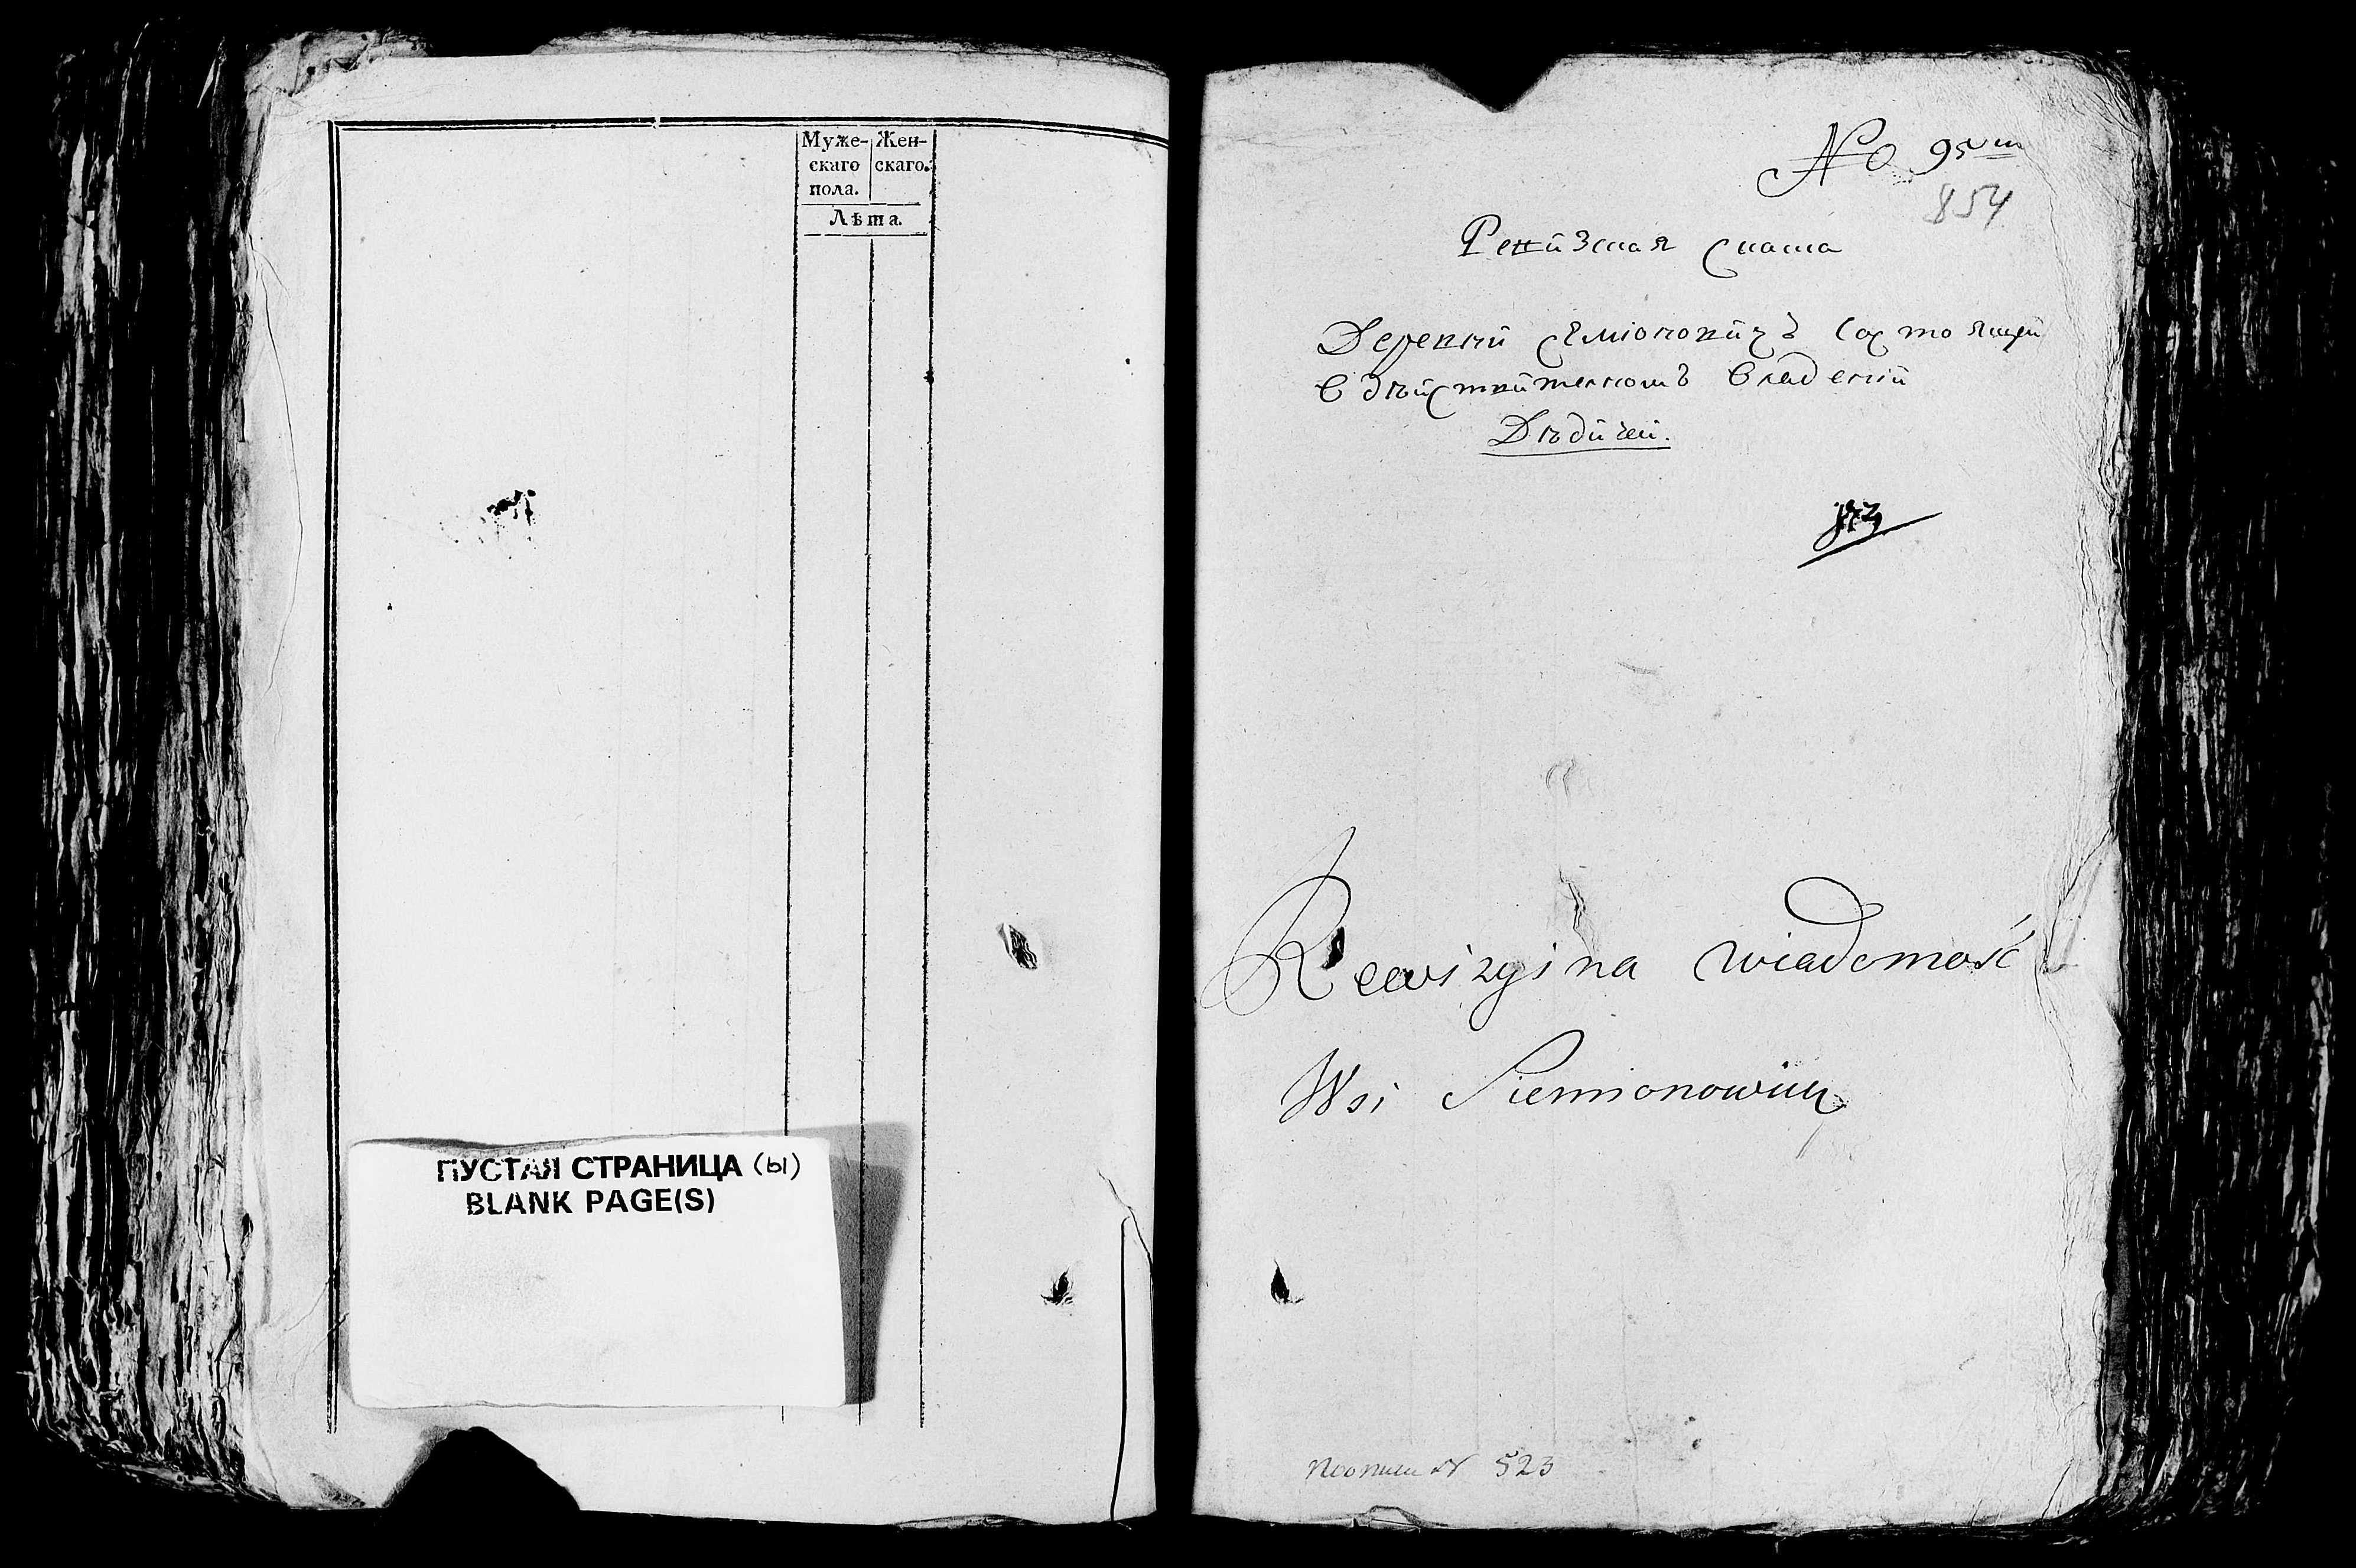 Муже- Жен-
скаго скаго.
пола.
Лѣта.
ПУСТАЯ СТРАНИЦА (ы)
BLANK PAGE(S)
No 95
854
Ревизская Сказка
Деревни Семіоновичъ Состоящей
в дѣйствителномъ владенїи
Дѣдичей.
Rewizyina wiadomość
Wsi Siemionowicz
N 523